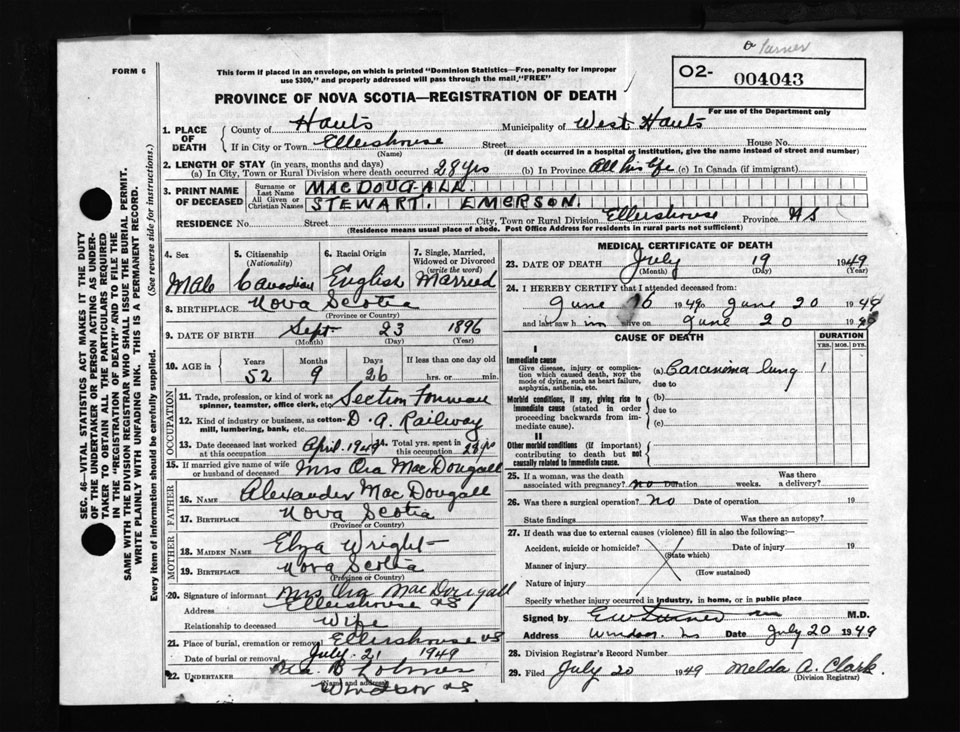 Turner
FORM 6
This form if placed in an envelope, on which is printed "Dominion Statistics—Free, penalty for improper
use $300," and properly addressed will pass through the mail, "FREE"
O2- 004043
For use of the Department only
PROVINCE OF NOVA SCOTIA—REGISTRATION OF DEATH
1. PLACE OF DEATH
County of Hants Municipality of West Hants
If in City or Town Ellershouse House No.
(Name) (If death occurred in a hospital or institution, give the name instead of street and number)
2. LENGTH OF STAY (in years, months and days)
(a) In City, Town or Rural Division where death occurred 28 yrs (b) In Province All his life (c) In Canada (if immigrant)
3. PRINT NAME OF DECEASED
Surname or Last Name MACDOUGALL.
All Given or Christian Names STEWART. EMERSON.
RESIDENCE No. Street City, Town or Rural Division Ellershouse Province NS
(Residence means usual place of abode. Post Office Address for residents in rural parts not sufficient)
4. Sex Male
5. Citizenship (Nationality) Canadian
6. Racial Origin English
7. Single, Married, Widowed or Divorced (write the word) Married
8. BIRTHPLACE Nova Scotia
(Province or Country)
9. DATE OF BIRTH Sept 23 1896
(Month) (Day) (Year)
10. AGE in Years Months Days If less than one day old
52 9 26 hrs. or min.
OCCUPATION
11. Trade, profession, or kind of work as spinner, teamster, office clerk, etc. Section Forman
12. Kind of industry or business, as cotton-mill, lumbering, bank, etc. D. A. Railway
13. Date deceased last worked at this occupation April 1949 Total yrs. spent in this occupation 29 yrs
15. If married give name of wife or husband of deceased Mrs Ora MacDougall
FATHER
16. NAME Alexander MacDougall
17. BIRTHPLACE Nova Scotia
(Province or Country)
MOTHER
18. MAIDEN NAME Elza Wright
19. BIRTHPLACE Nova Scotia
(Province or Country)
20. Signature of informant Mrs Ora MacDougall
Address Ellershouse NS
Relationship to deceased Wife
21. Place of burial, cremation or removal Ellershouse NS
Date of burial or removal July. 21 1949
22. UNDERTAKER
(Name and address)
Windsor NS
MEDICAL CERTIFICATE OF DEATH
23. DATE OF DEATH July 19 1949
(Month) (Day) (Year)
24. I HEREBY CERTIFY that I attended deceased from:
June 16 1949 to June 20 1949
and last saw him alive on June 20 1949
CAUSE OF DEATH DURATION
YRS. MOS. DYS.
I
Immediate cause
Give disease, injury or complication which caused death, NOT the mode of dying, such as heart failure, asphyxia, asthenia, etc.
(a) Carcinoma lung 1
due to
Morbid conditions, if any, giving rise to immediate cause (stated in order proceeding backwards from immediate cause).
(b)
due to
(c)
II
Other morbid conditions (if important) contributing to death but not causally related to immediate cause.
25. If a woman, was the death associated with pregnancy? no Duration weeks. Was there a delivery?
26. Was there a surgical operation? no Date of operation 19
State findings Was there an autopsy?
27. If death was due to external causes (violence) fill in also the following:
Accident, suicide or homicide? Date of injury 19
(State which)
Manner of injury
(How sustained)
Nature of injury
Specify whether injury occurred in industry, in home, or in public place
Signed by E W Turner M.D.
Address Windsor. NS Date July 20 1949
28. Division Registrar's Record Number
29. Filed July 20 1949 Melda A. Clark
(Division Registrar)
SEC. 46—VITAL STATISTICS ACT MAKES IT THE DUTY
OF THE UNDERTAKER OR PERSON ACTING AS UNDER-
TAKER TO OBTAIN ALL THE PARTICULARS REQUIRED
IN THE "REGISTRATION OF DEATH" AND TO FILE THE
SAME WITH THE DIVISION REGISTRAR WHO SHALL ISSUE THE BURIAL PERMIT.
WRITE PLAINLY WITH UNFADING INK. THIS IS A PERMANENT RECORD.
Every item of information should be carefully supplied. (See reverse side for instructions.)